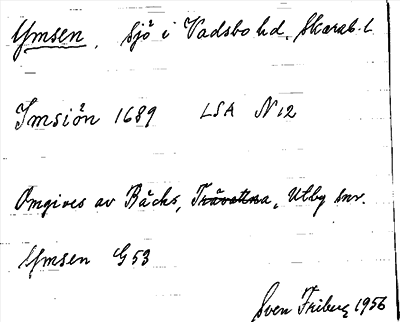 Ymsen, Sjö i Vadsbo hd. Skarab. l.
Imsiön 1689 LSA N12
Omgives av Bäcks, Trävattna, Utby snr.
Ymsen G53
Sven Friberg 1956